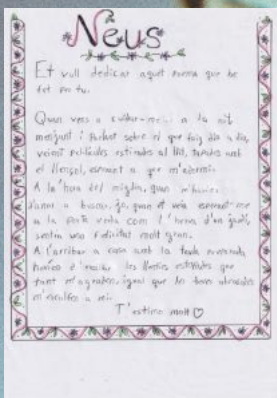 Neus
Et vull dedicar aquet poema que he
fet per tu.
Quan vens a cuidar-me a la nit
menjant i parlant sobre el que faig dia a dia,
veient pel·lícules estirades al llit, tapades amb
el llençol, esperant a que m'adormi.
A la hora del migdia, quan
d'anar a buscar-, quan et veia esperant-me
a la porta verda com l'herba d'un jardí,
sentia una felicitat molt gran.
A l'arribar a casa amb la taula preparada,
les llenties estofades que
tant m'agraden, igual que les teves abraçades
a mi.
T'estimo molt